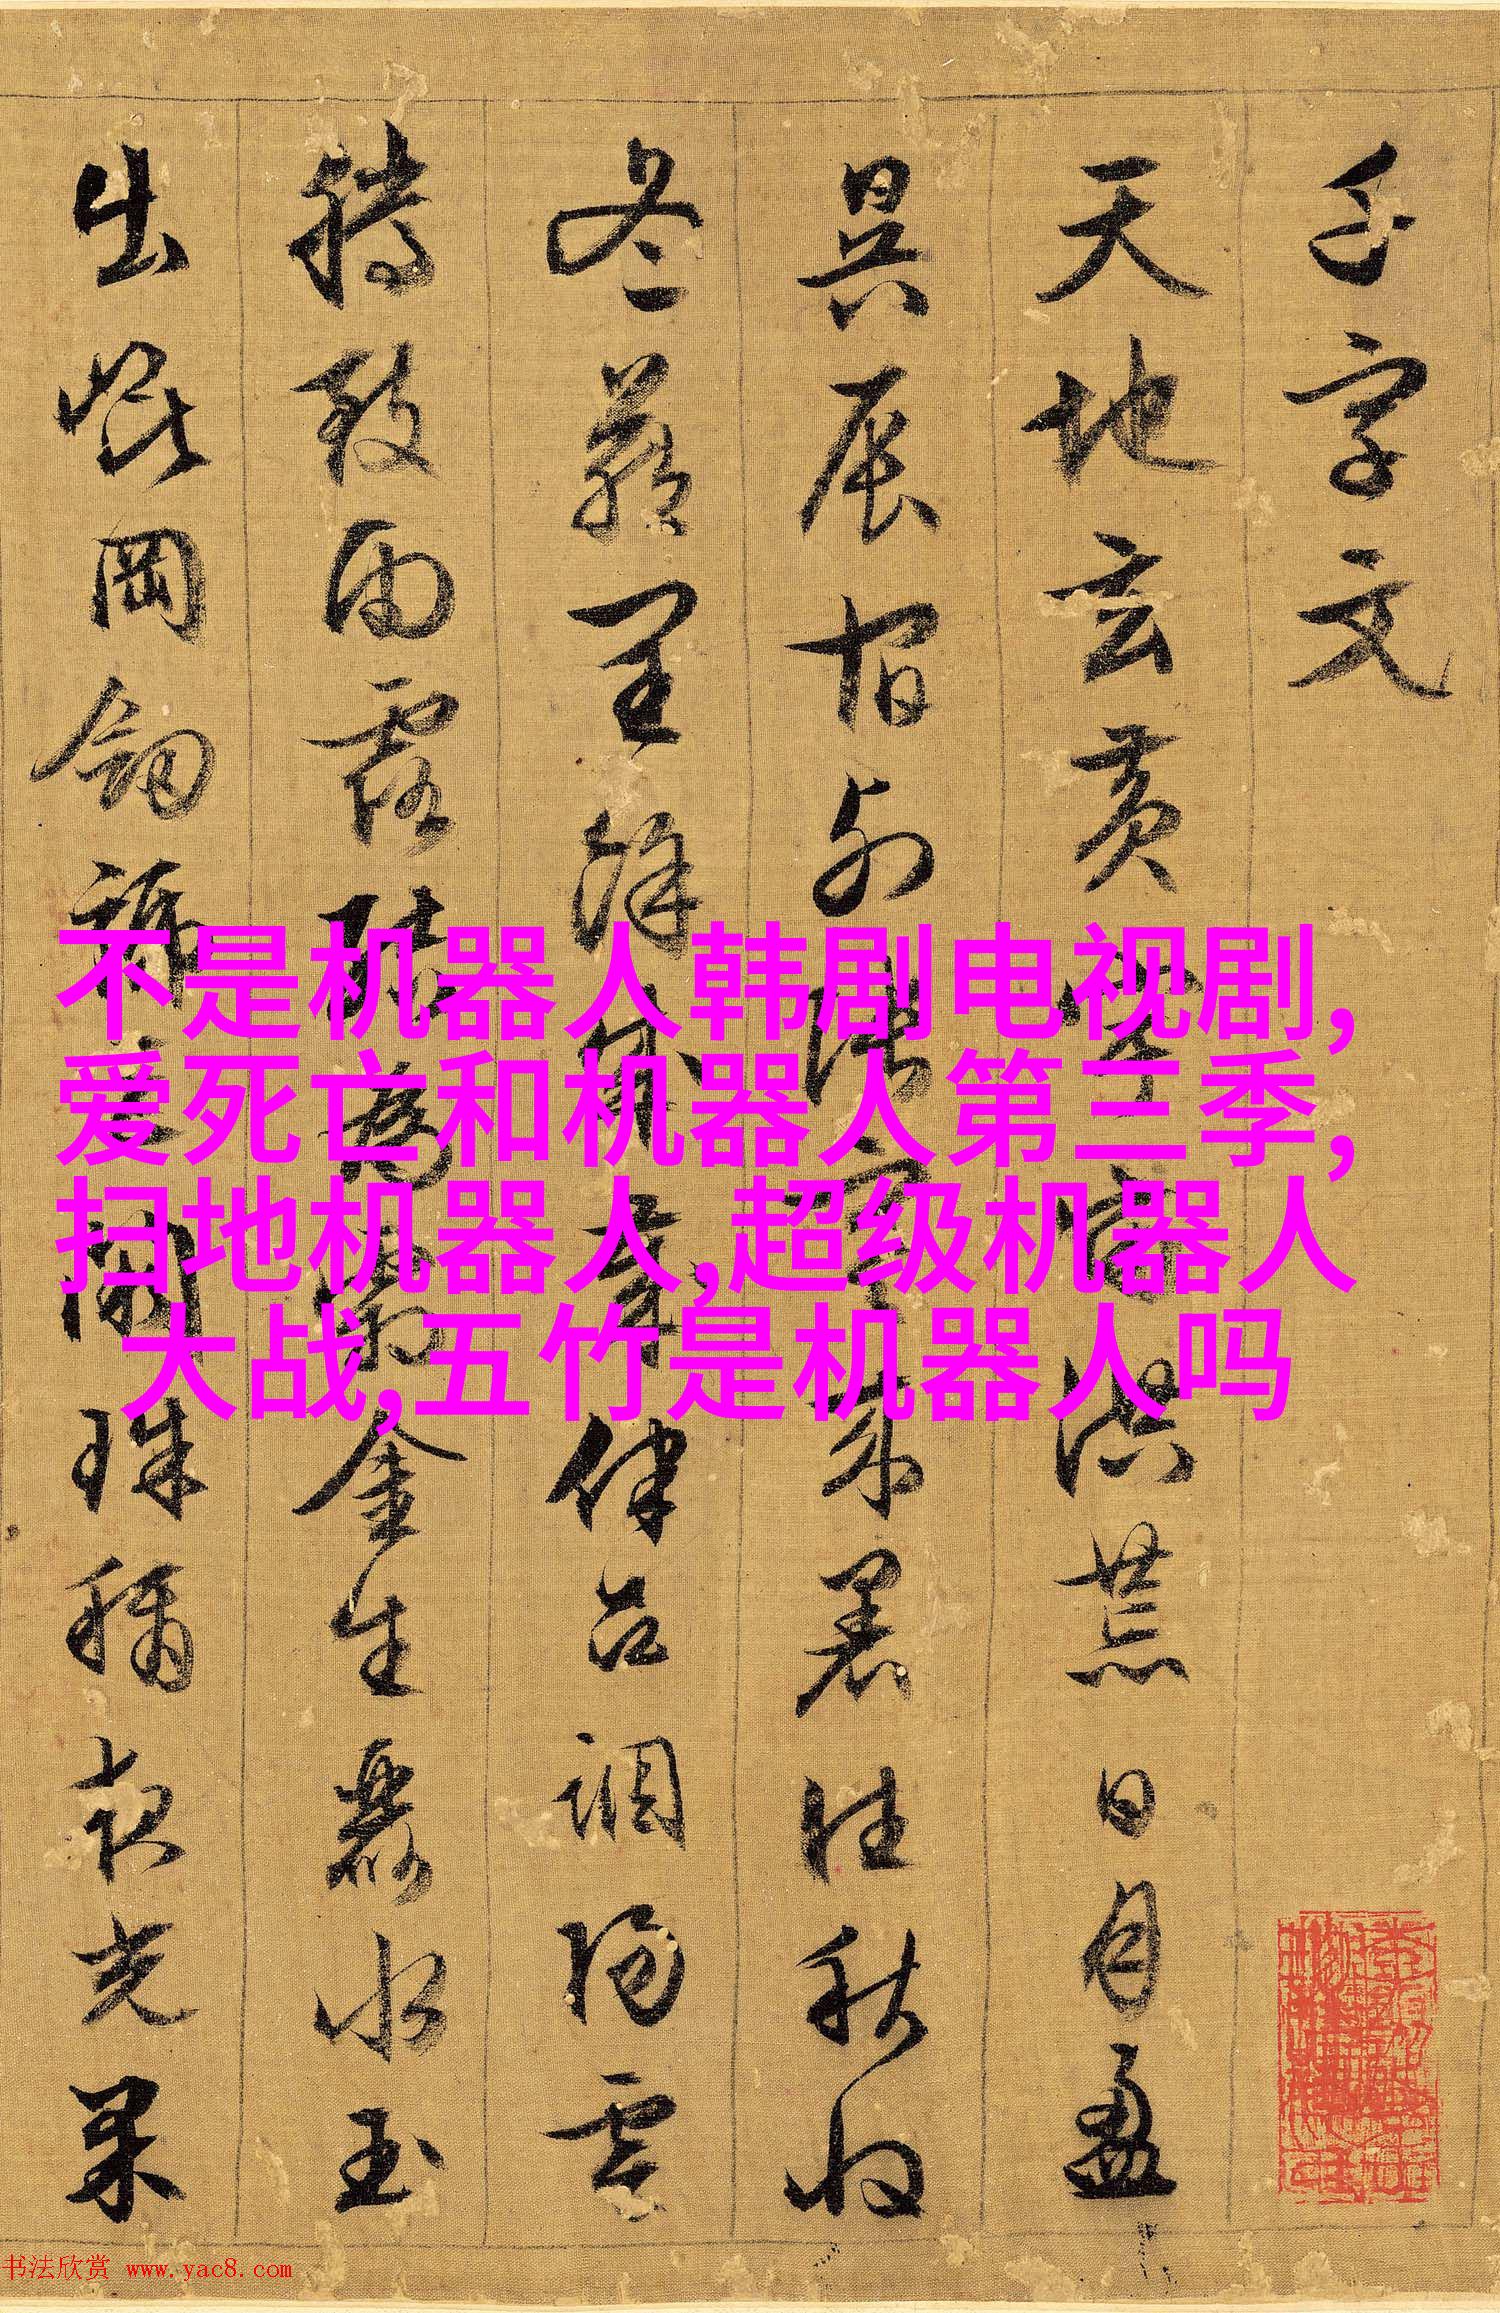 千字文
天地玄黄宇宙洪荒日月盈
昃辰宿列張寒来暑往秋收
冬蔵閏餘成歲律吕調陽雲
騰致雨露結為霜金生麗水玉
出崐岡劒號巨闕珠稱夜光果
不是机器人韩剧电视剧,
爱死亡和机器人第三季,
扫地机器人,超级机器人
大战,五竹是机器人吗
书法欣赏 www.yac8.com